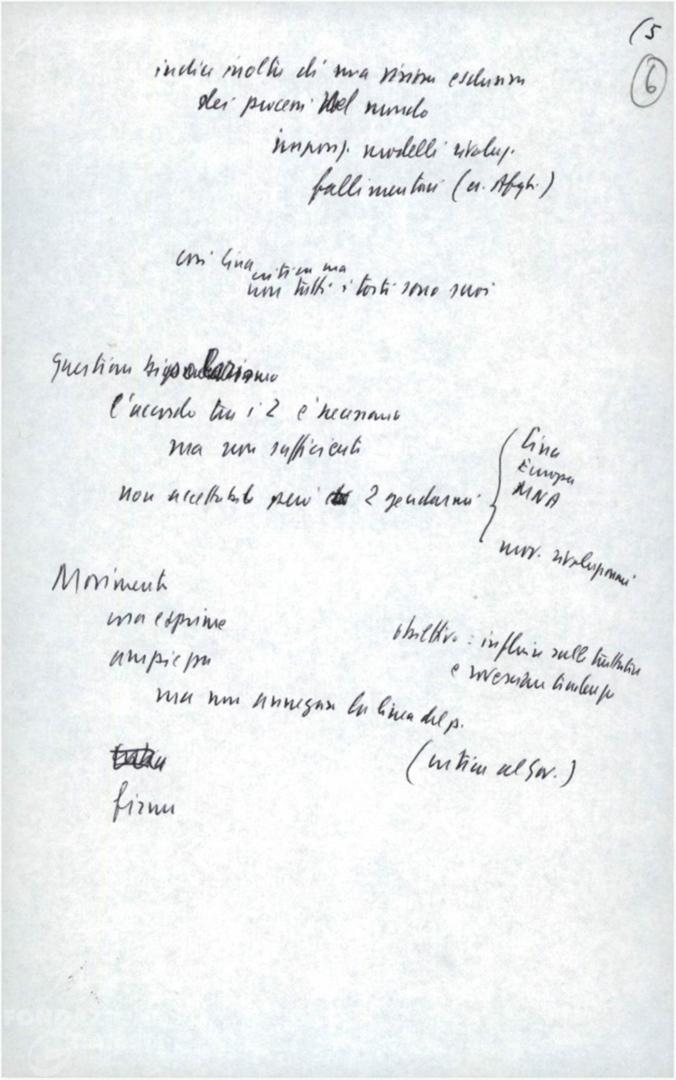 (5
6
indice inoltre di una visione esclusiva
dei processi nel mondo
impos. modelli svilup.
fallimentari (cr. Afgh.)
così Cina
critica ma
non tutti i torti sono suoi
Questione bipolarismo
l'accordo tra i 2 è necessario
ma non sufficiente
non accettabile però 2 gendarmi
Cina
Europa
MNA
mov.
Movimenti
ma esprime
ampiezza
ma non annegare la linea del p.
obiettivo: influire sulle trattative
e rovesciare tendenze
(critica al Gov.)
firme
FONDAZIONE